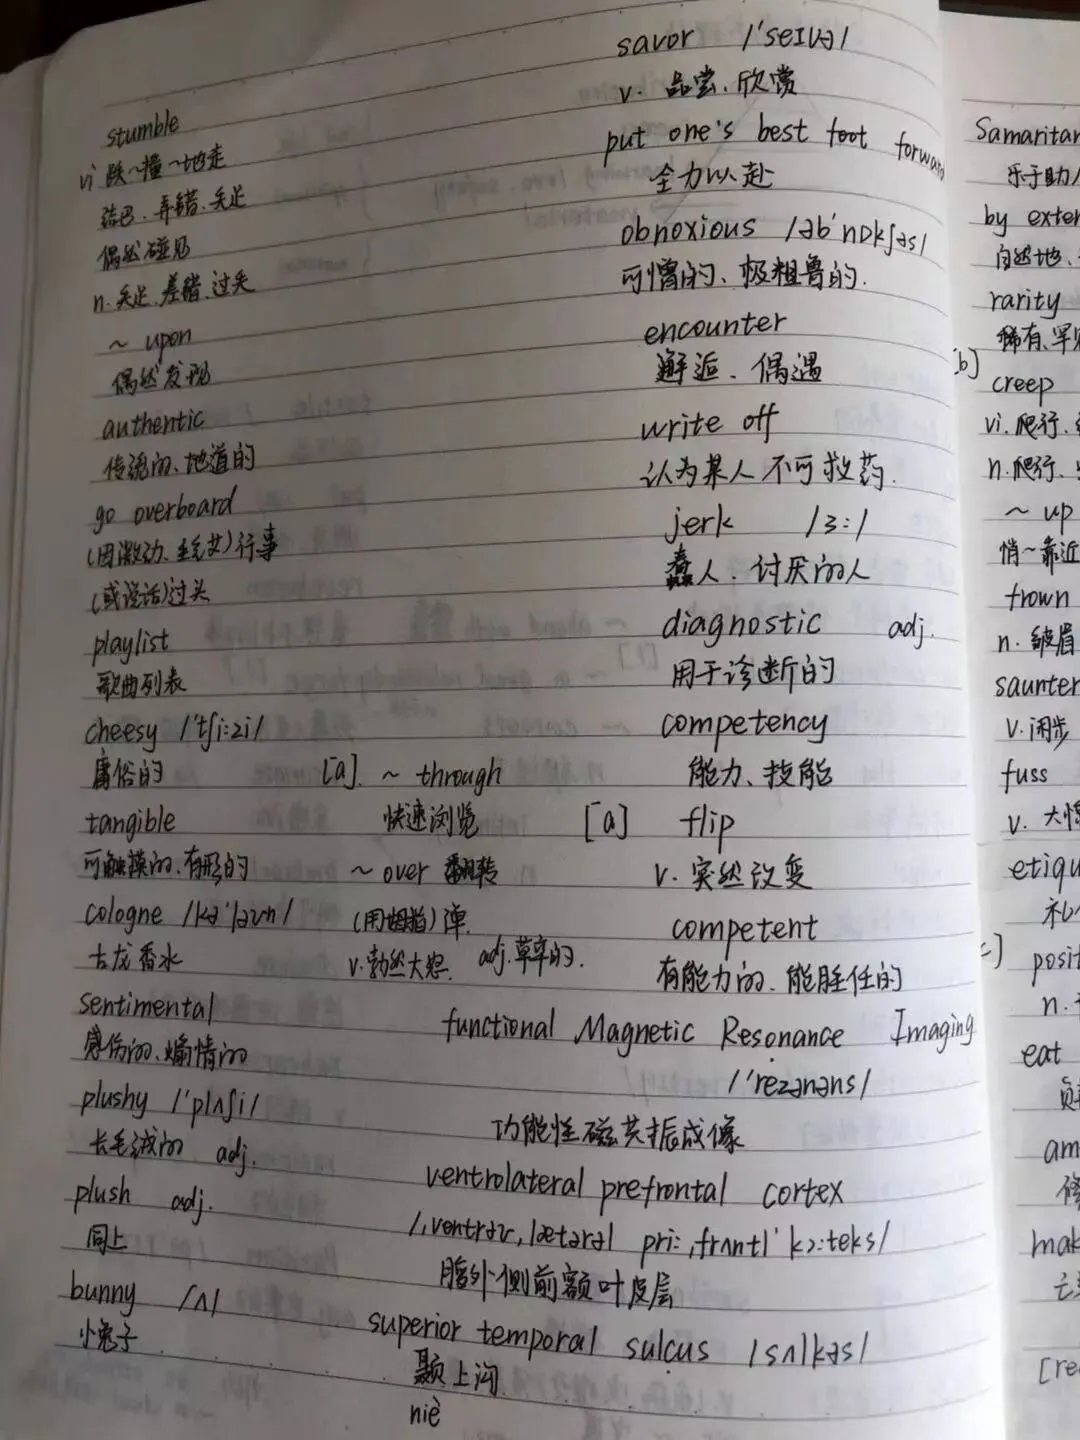 stumble
vi 跌~撞~地走
结巴、弄错、失足
偶然碰见
n. 失足、差错、过失
~ upon
偶然发现
authentic
传统的、地道的
go overboard
(因激动、 )行事
(或说话)过头
playlist
歌曲列表
cheesy /'tʃi:zi/
庸俗的
tangible
可触摸的、有形的
cologne /kə'ləʊn/
古龙香水
sentimental
感伤的、煽情的
plushy /'plʌʃi/
长毛绒的 adj.
plush adj.
同上
bunny /ʌ/
小兔子
[a]. ~ through
快速浏览
~ over 翻转
(用拇指)弹
v. 勃然大怒. adj. 草率的.
savor /'seɪvə/
v. 品尝、欣赏
put one's best foot forward
全力以赴
obnoxious /əb'nɒkʃəs/
可憎的、极粗鲁的.
encounter
邂逅、偶遇
write off
认为某人不可救药.
jerk /ɜ:/
蠢人、讨厌的人
diagnostic adj.
用于诊断的
competency
能力、技能
[a] flip
v. 突然改变
competent
有能力的、能胜任的
functional Magnetic Resonance Imaging
/'rezənəns/
功能性磁共振成像
ventrolateral prefrontal cortex
/ˌventrəʊˌlætərəl pri:ˌfrʌntl 'kɔ:teks/
腹外侧前额叶皮层
superior temporal sulcus /sʌlkəs/
颞上沟
niè
Samaritan
乐于助人
by exten
自然地、
rarity
稀有、罕见
[b] creep
vi. 爬行、
n. 爬行、
~ up
悄~靠近
frown
n. 皱眉
saunter
v. 闲步
fuss
v. 大惊
etiqu
礼
posit
n.
eat
am
mak
[re